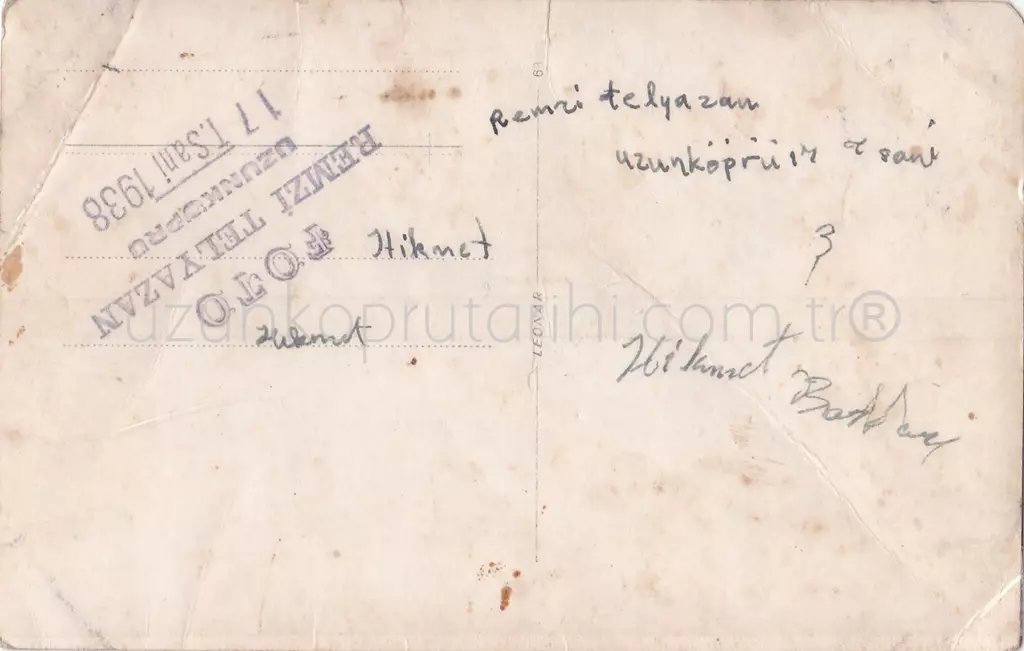 FOTO
REMZİ TELYAZAN
UZUNKOPRU
17 T.Sani 1938
Remzi telyazan
uzunköprü 17 T sani
3
Hikmet
Hikmet
Hikmet
LEONAR
uzunkoprutarihi.com.tr®